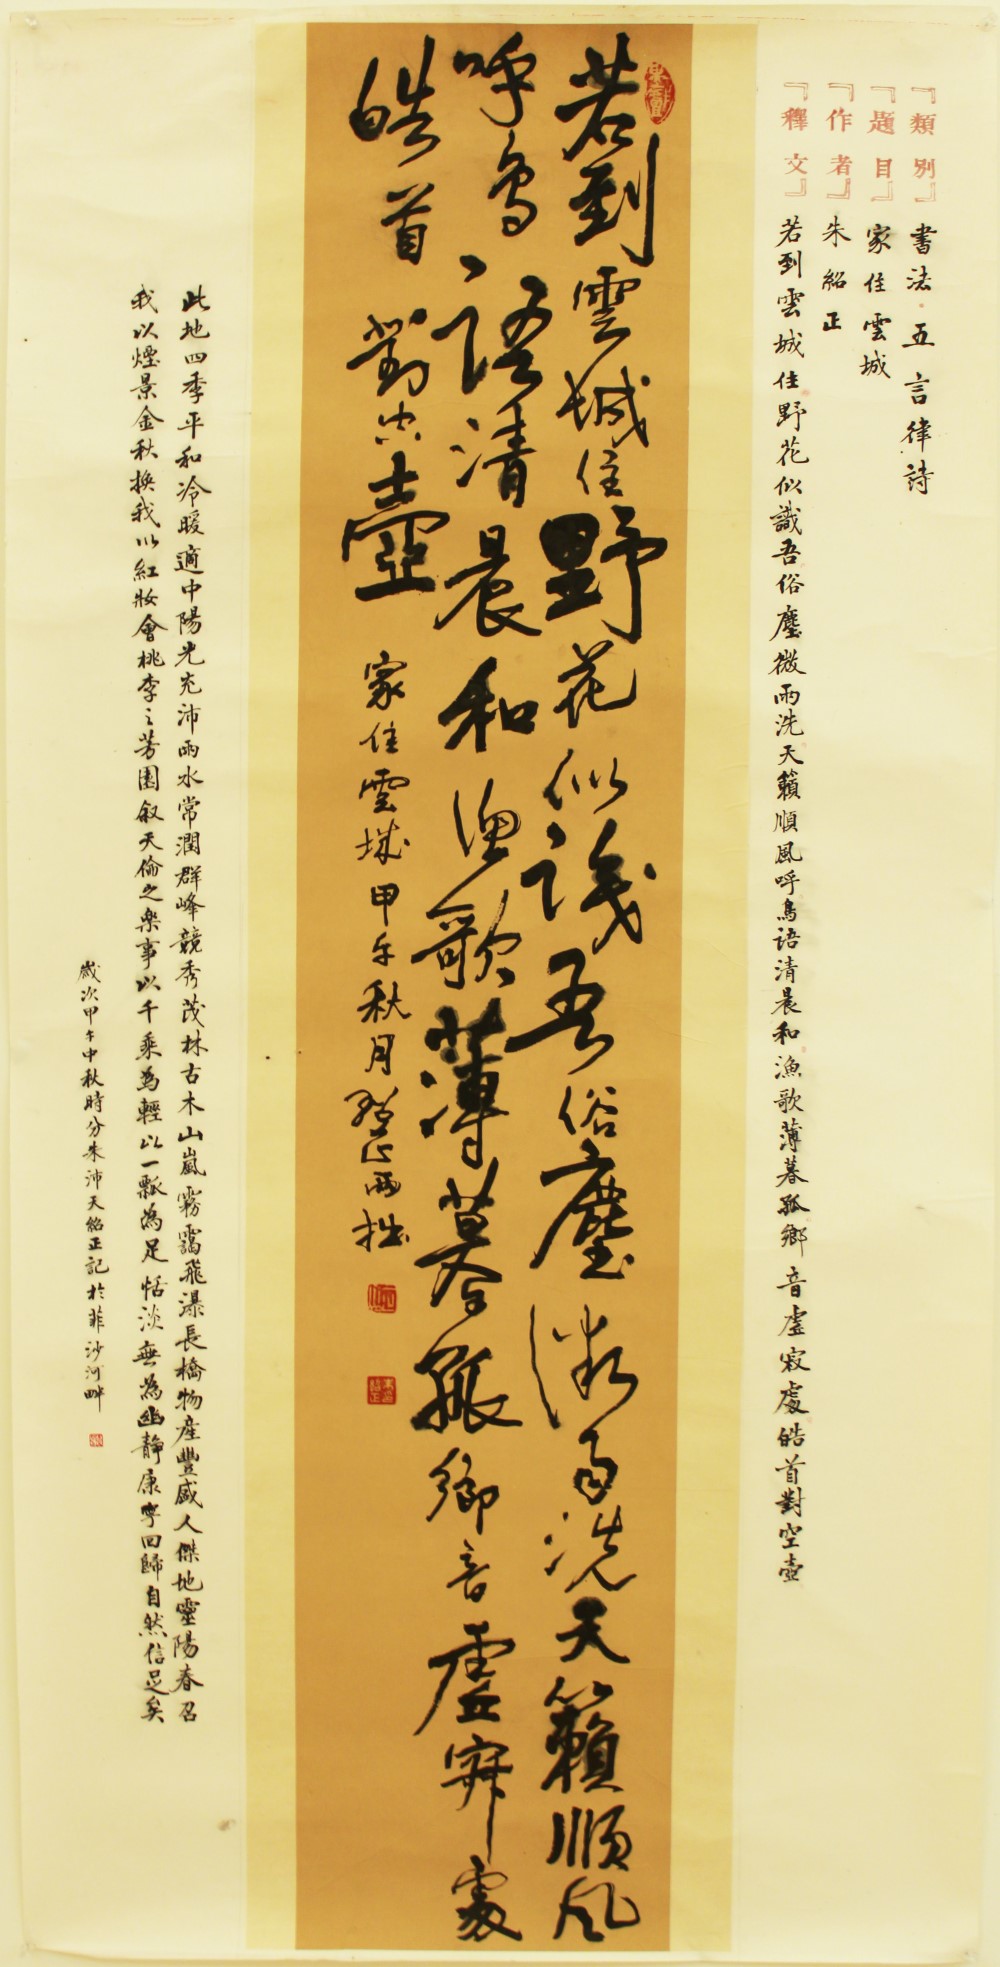 『類別』書法·五言律詩
『題目』家住雲城
『作者』朱紹正
『釋文』若到雲城住野花似識吾俗塵微雨洗天籟順風呼鳥語清晨和漁歌薄暮孤鄉音虛寂處皓首對空壺
若到雲城住野花似識吾俗塵微雨洗天籟順風
呼鳥語清晨和漁歌薄暮孤鄉音虛寂處
皓首對空壺
家住雲城甲午秋月紹正兩拙
此地四季平和冷暖適中陽光充沛雨水常潤群峰競秀茂林古木山嵐霧靄飛瀑長橋物產豐盛人傑地靈陽春召
我以煙景金秋換我以紅妝會桃李之芳園敘天倫之樂事以千乘為輕以一瓢為足恬淡無為幽靜康寧回歸自然信足矣
歲次甲午中秋時分朱沛天紹正記於菲沙河畔